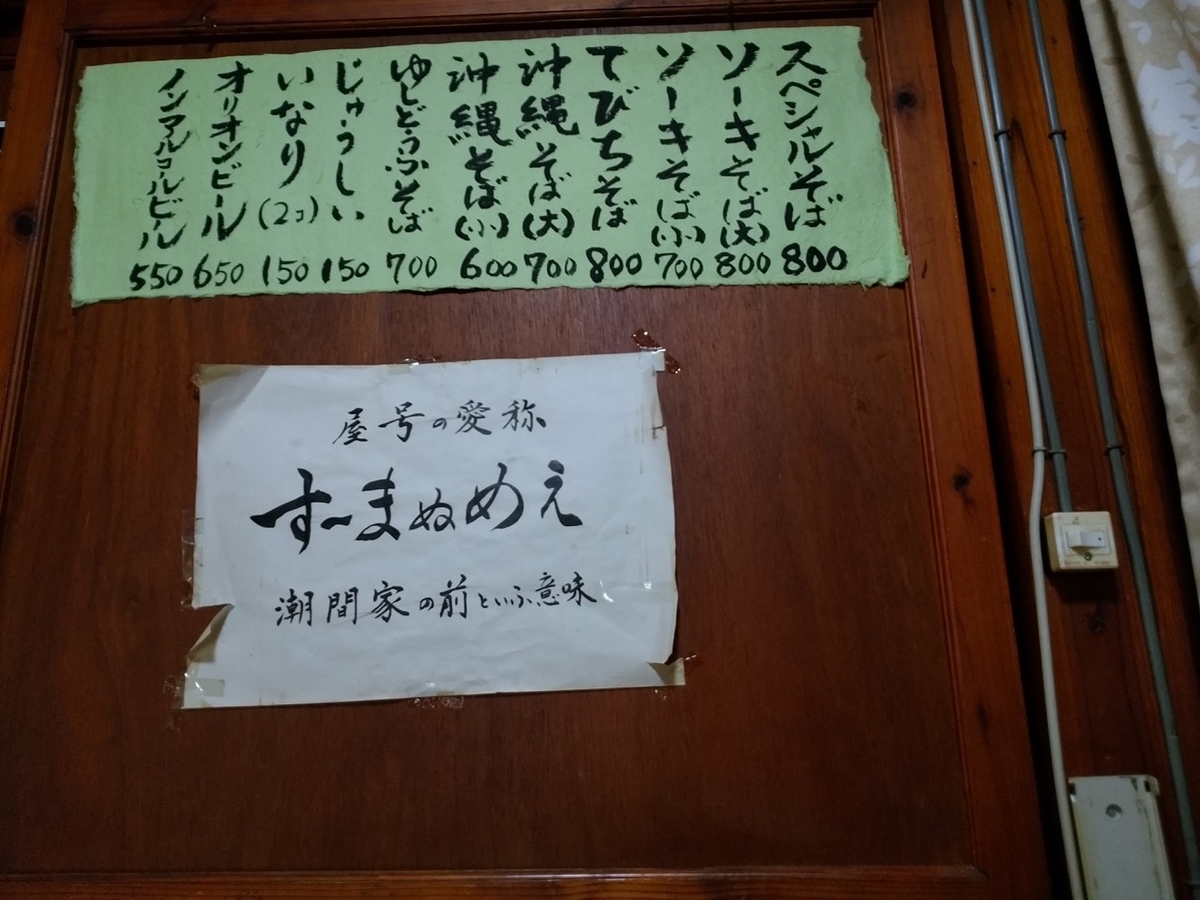 スペシャルそば 800
ソーキそば(大) 800
ソーキそば(小) 700
てびちそば 800
沖縄そば(大) 700
沖縄そば(小) 600
ゆしどうふそば 700
じゅうしい 150
いなり(2コ) 150
オリオンビール 650
ノンアルコールビール 550
屋号の愛称
すーまぬめえ
潮間家の前といふ意味